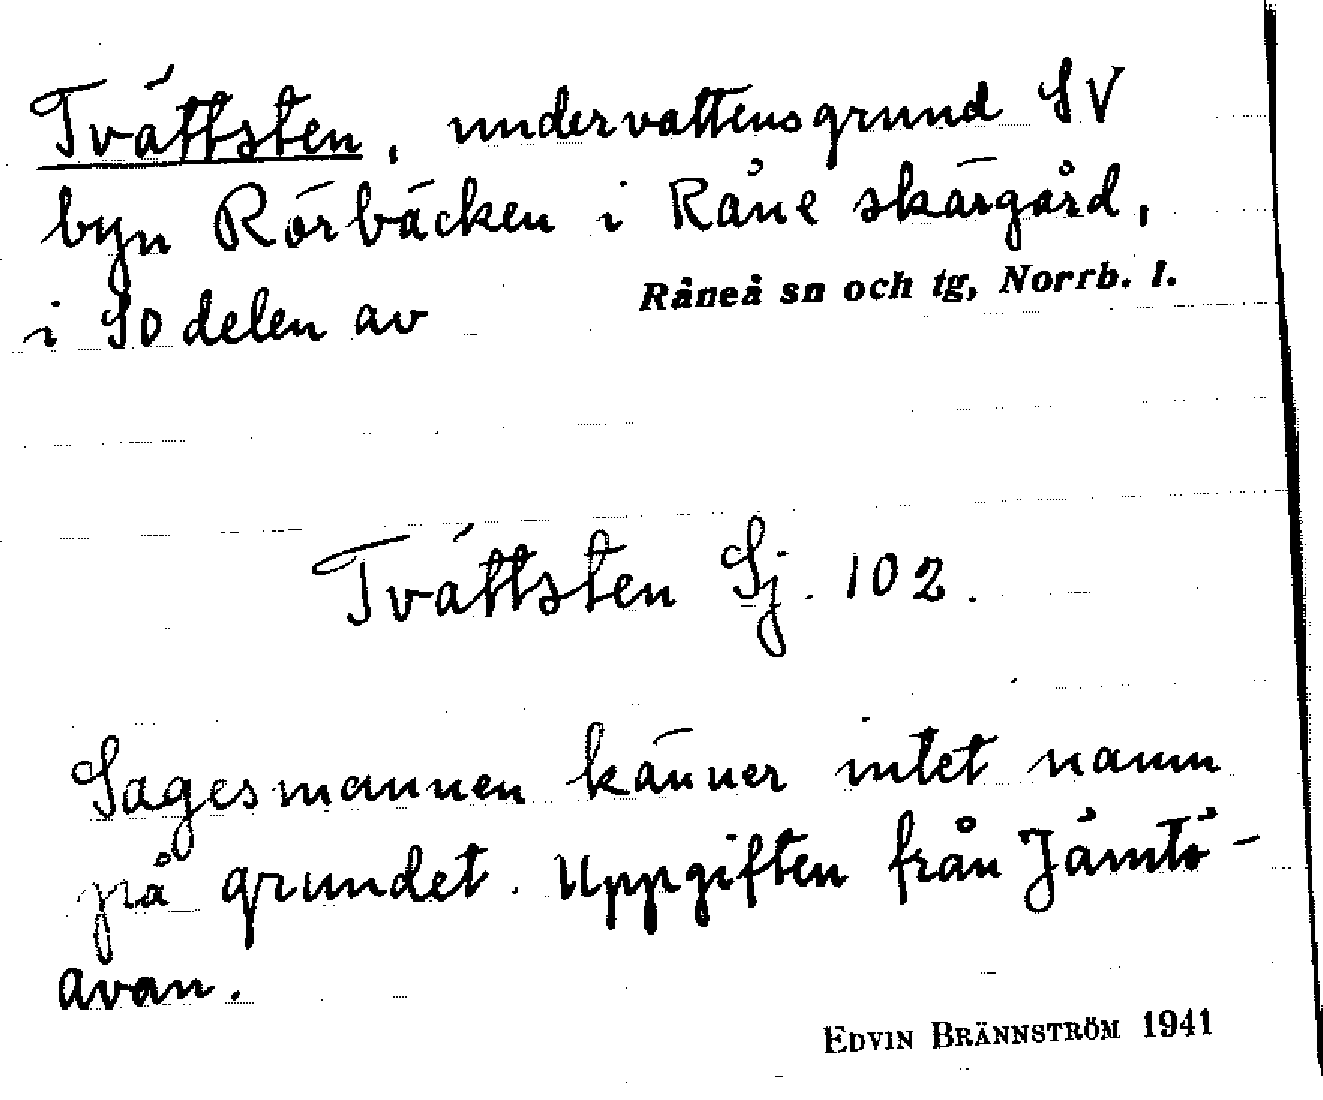 Tvättsten, undervattensgrund SV
byn Rörbäcken i Råne skärgård,
i SO delen av
Råneå sn och tg, Norrb. l.
Tvättsten Sj. 102.
Sagesmannen känner intet namn
på grundet. Uppgiften från Jämtö-
avan.
EDVIN BRÄNNSTRÖM 1941